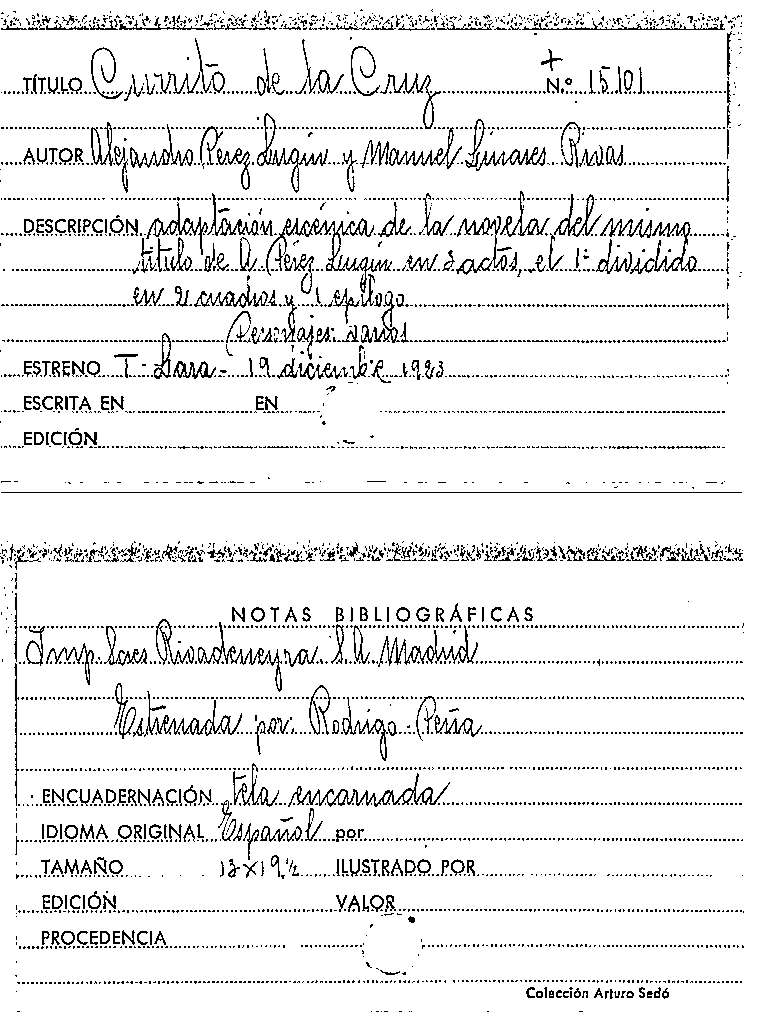 TÍTULO Currito de la Cruz + N.º 15101
AUTOR Alejandro Pérez Lugín y Manuel Linares Rivas
DESCRIPCIÓN adaptación escénica de la novela del mismo
título de A. Pérez Lugín en 3 actos, el 1º dividido
en 2 cuadros y 1 epílogo
Personajes: varios
ESTRENO T. Lara - 19 diciembre 1923
ESCRITA EN EN
EDICIÓN
NOTAS BIBLIOGRÁFICAS
Imp. Sucs Rivadeneyra S.A. Madrid
Estrenada por: Rodrigo - Peña
ENCUADERNACIÓN tela encarnada
IDIOMA ORIGINAL Español por
TAMAÑO 13 x 19,½ ILUSTRADO POR
EDICIÓN VALOR
PROCEDENCIA
Colección Arturo Sedó